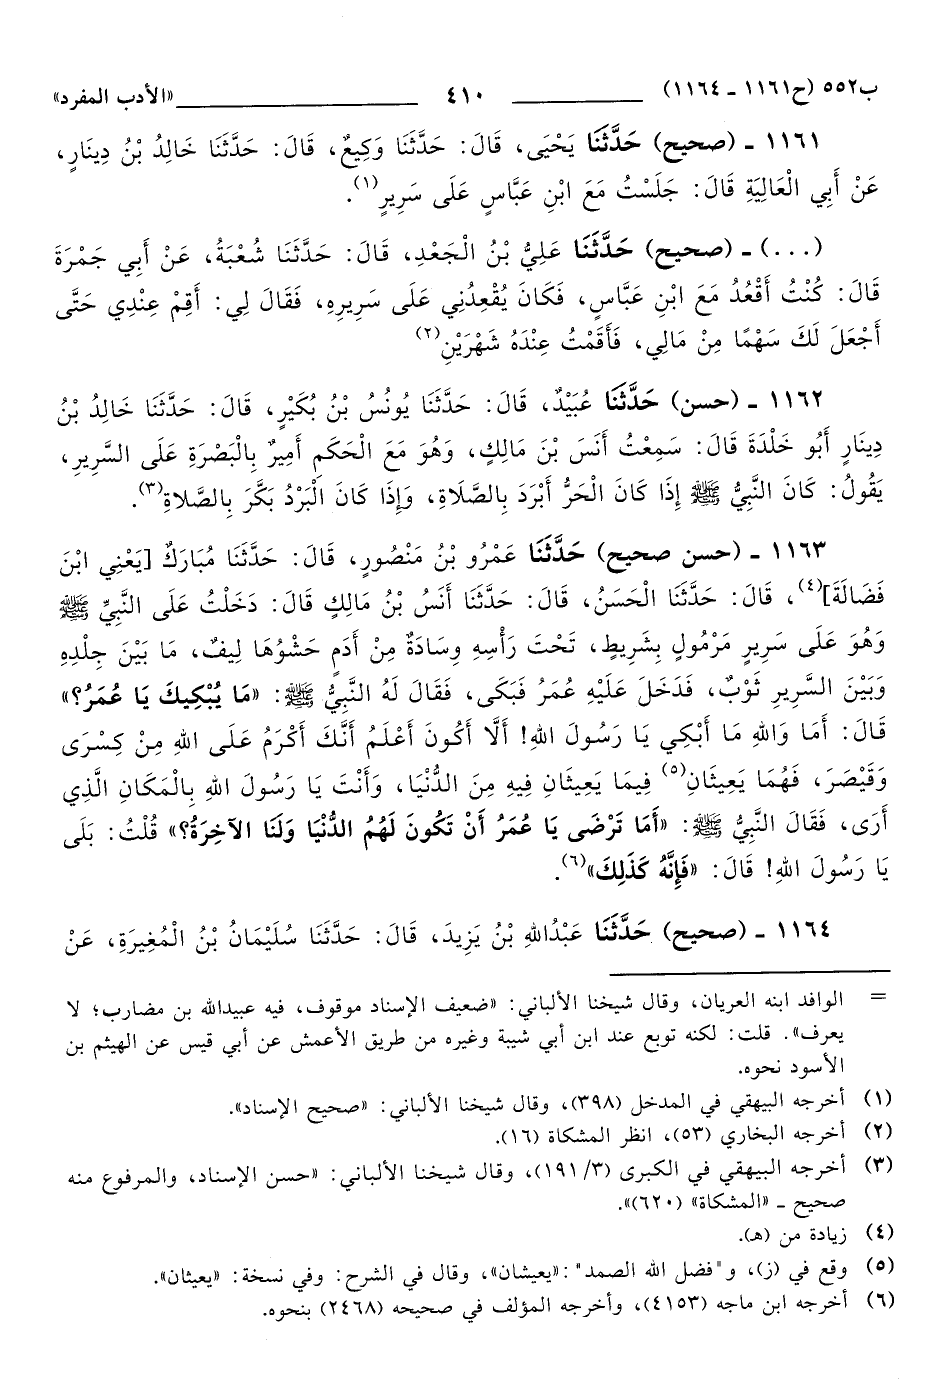 ب٥٥٢ (ح١١٦١ ـ ١١٦٤) ٤١٠ «الأدب المفرد»
١١٦١ ـ (صحيح) حَدَّثَنَا يَحْيَى، قَالَ: حَدَّثَنَا وَكِيعٌ، قَالَ: حَدَّثَنَا خَالِدُ بْنُ دِينَارٍ،
عَنْ أَبِي الْعَالِيَةِ قَالَ: جَلَسْتُ مَعَ ابْنِ عَبَّاسٍ عَلَى سَرِيرٍ(١).
(...) ـ (صحيح) حَدَّثَنَا عَلِيُّ بْنُ الْجَعْدِ، قَالَ: حَدَّثَنَا شُعْبَةُ، عَنْ أَبِي جَمْرَةَ
قَالَ: كُنْتُ أَقْعُدُ مَعَ ابْنِ عَبَّاسٍ، فَكَانَ يُقْعِدُنِي عَلَى سَرِيرِهِ، فَقَالَ لِي: أَقِمْ عِنْدِي حَتَّى
أَجْعَلَ لَكَ سَهْمًا مِنْ مَالِي، فَأَقَمْتُ عِنْدَهُ شَهْرَيْنِ(٢)
١١٦٢ ـ (حسن) حَدَّثَنَا عُبَيْدٌ، قَالَ: حَدَّثَنَا يُونُسُ بْنُ بُكَيْرٍ، قَالَ: حَدَّثَنَا خَالِدُ بْنُ
دِينَارٍ أَبُو خَلْدَةَ قَالَ: سَمِعْتُ أَنَسَ بْنَ مَالِكٍ، وَهُوَ مَعَ الْحَكَمِ أَمِيرٌ بِالْبَصْرَةِ عَلَى السَّرِيرِ،
يَقُولُ: كَانَ النَّبِيُّ ﷺ إِذَا كَانَ الْحَرُّ أَبْرَدَ بِالصَّلَاةِ، وَإِذَا كَانَ الْبَرْدُ بَكَّرَ بِالصَّلاةِ(٣).
١١٦٣ ـ (حسن صحيح) حَدَّثَنَا عَمْرُو بْنُ مَنْصُورٍ، قَالَ: حَدَّثَنَا مُبَارَكٌ [يَعْنِي ابْنَ
فَضَالَةَ](٤)، قَالَ: حَدَّثَنَا الْحَسَنُ، قَالَ: حَدَّثَنَا أَنَسُ بْنُ مَالِكٍ قَالَ: دَخَلْتُ عَلَى النَّبِيِّ ﷺ
وَهُوَ عَلَى سَرِيرٍ مَرْمُولٍ بِشَرِيطٍ، تَحْتَ رَأْسِهِ وِسَادَةٌ مِنْ أَدَمٍ حَشْوُهَا لِيفٌ، مَا بَيْنَ جِلْدِهِ
وَبَيْنَ السَّرِيرِ ثَوْبٌ، فَدَخَلَ عَلَيْهِ عُمَرُ فَبَكَى، فَقَالَ لَهُ النَّبِيُّ ﷺ: «مَا يُبْكِيكَ يَا عُمَرُ؟»
قَالَ: أَمَا وَاللهِ مَا أَبْكِي يَا رَسُولَ اللهِ! أَلَّا أَكُونَ أَعْلَمُ أَنَّكَ أَكْرَمُ عَلَى اللهِ مِنْ كِسْرَى
وَقَيْصَرَ، فَهُمَا يَعِيثَانِ(٥) فِيمَا يَعِيثَانِ فِيهِ مِنَ الدُّنْيَا، وَأَنْتَ يَا رَسُولَ اللهِ بِالْمَكَانِ الَّذِي
أَرَى، فَقَالَ النَّبِيُّ ﷺ: «أَمَا تَرْضَى يَا عُمَرُ أَنْ تَكُونَ لَهُمُ الدُّنْيَا وَلَنَا الآخِرَةُ؟» قُلْتُ: بَلَى
يَا رَسُولَ اللهِ! قَالَ: «فَإِنَّهُ كَذَلِكَ»(٦).
١١٦٤ ـ (صحيح) حَدَّثَنَا عَبْدُاللهِ بْنُ يَزِيدَ، قَالَ: حَدَّثَنَا سُلَيْمَانُ بْنُ الْمُغِيرَةِ، عَنْ
= الوافد ابنه العريان، وقال شيخنا الألباني: «ضعيف الإسناد موقوف، فيه عبيدالله بن مضارب؛ لا
يعرف». قلت: لكنه توبع عند ابن أبي شيبة وغيره من طريق الأعمش عن أبي قيس عن الهيثم بن
الأسود نحوه.
(١) أخرجه البيهقي في المدخل (٣٩٨)، وقال شيخنا الألباني: «صحيح الإسناد».
(٢) أخرجه البخاري (٥٣)، انظر المشكاة (١٦).
(٣) أخرجه البيهقي في الكبرى (٣/ ١٩١)، وقال شيخنا الألباني: «حسن الإسناد، والمرفوع منه
صحيح ـ «المشكاة» (٦٢٠)».
(٤) زيادة من (هـ).
(٥) وقع في (ز)، و"فضل الله الصمد": «يعيشان»، وقال في الشرح: وفي نسخة: «يعيثان».
(٦) أخرجه ابن ماجه (٤١٥٣)، وأخرجه المؤلف في صحيحه (٢٤٦٨) بنحوه.